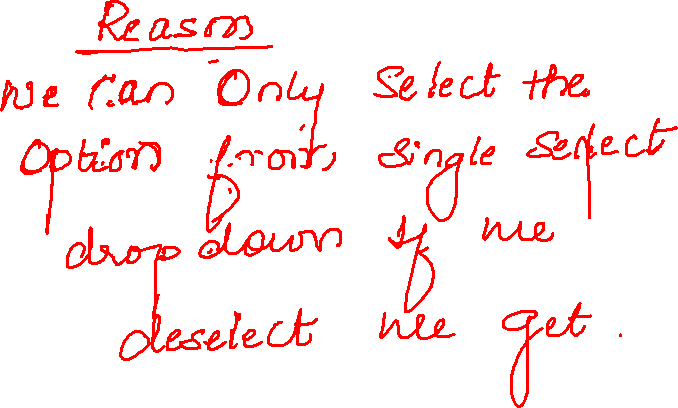 Reason
we can Only Select the
option from single select
drop down if we
deselect we get.